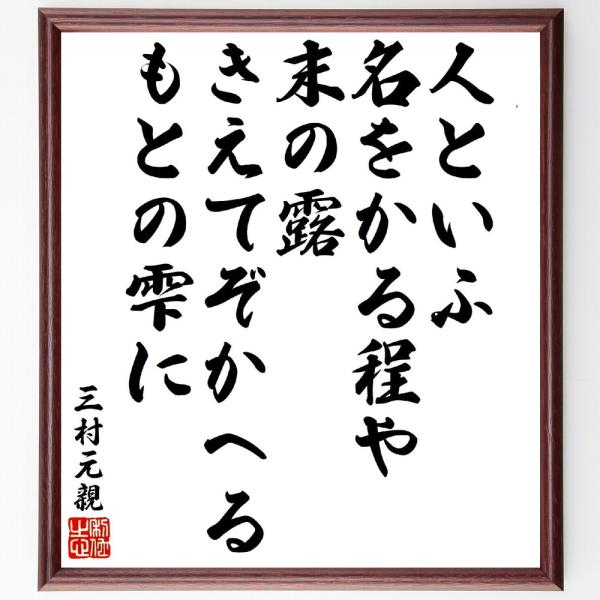 人といふ
名をかる程や
末の露
きえてぞかへる
もとの雫に
三村元親